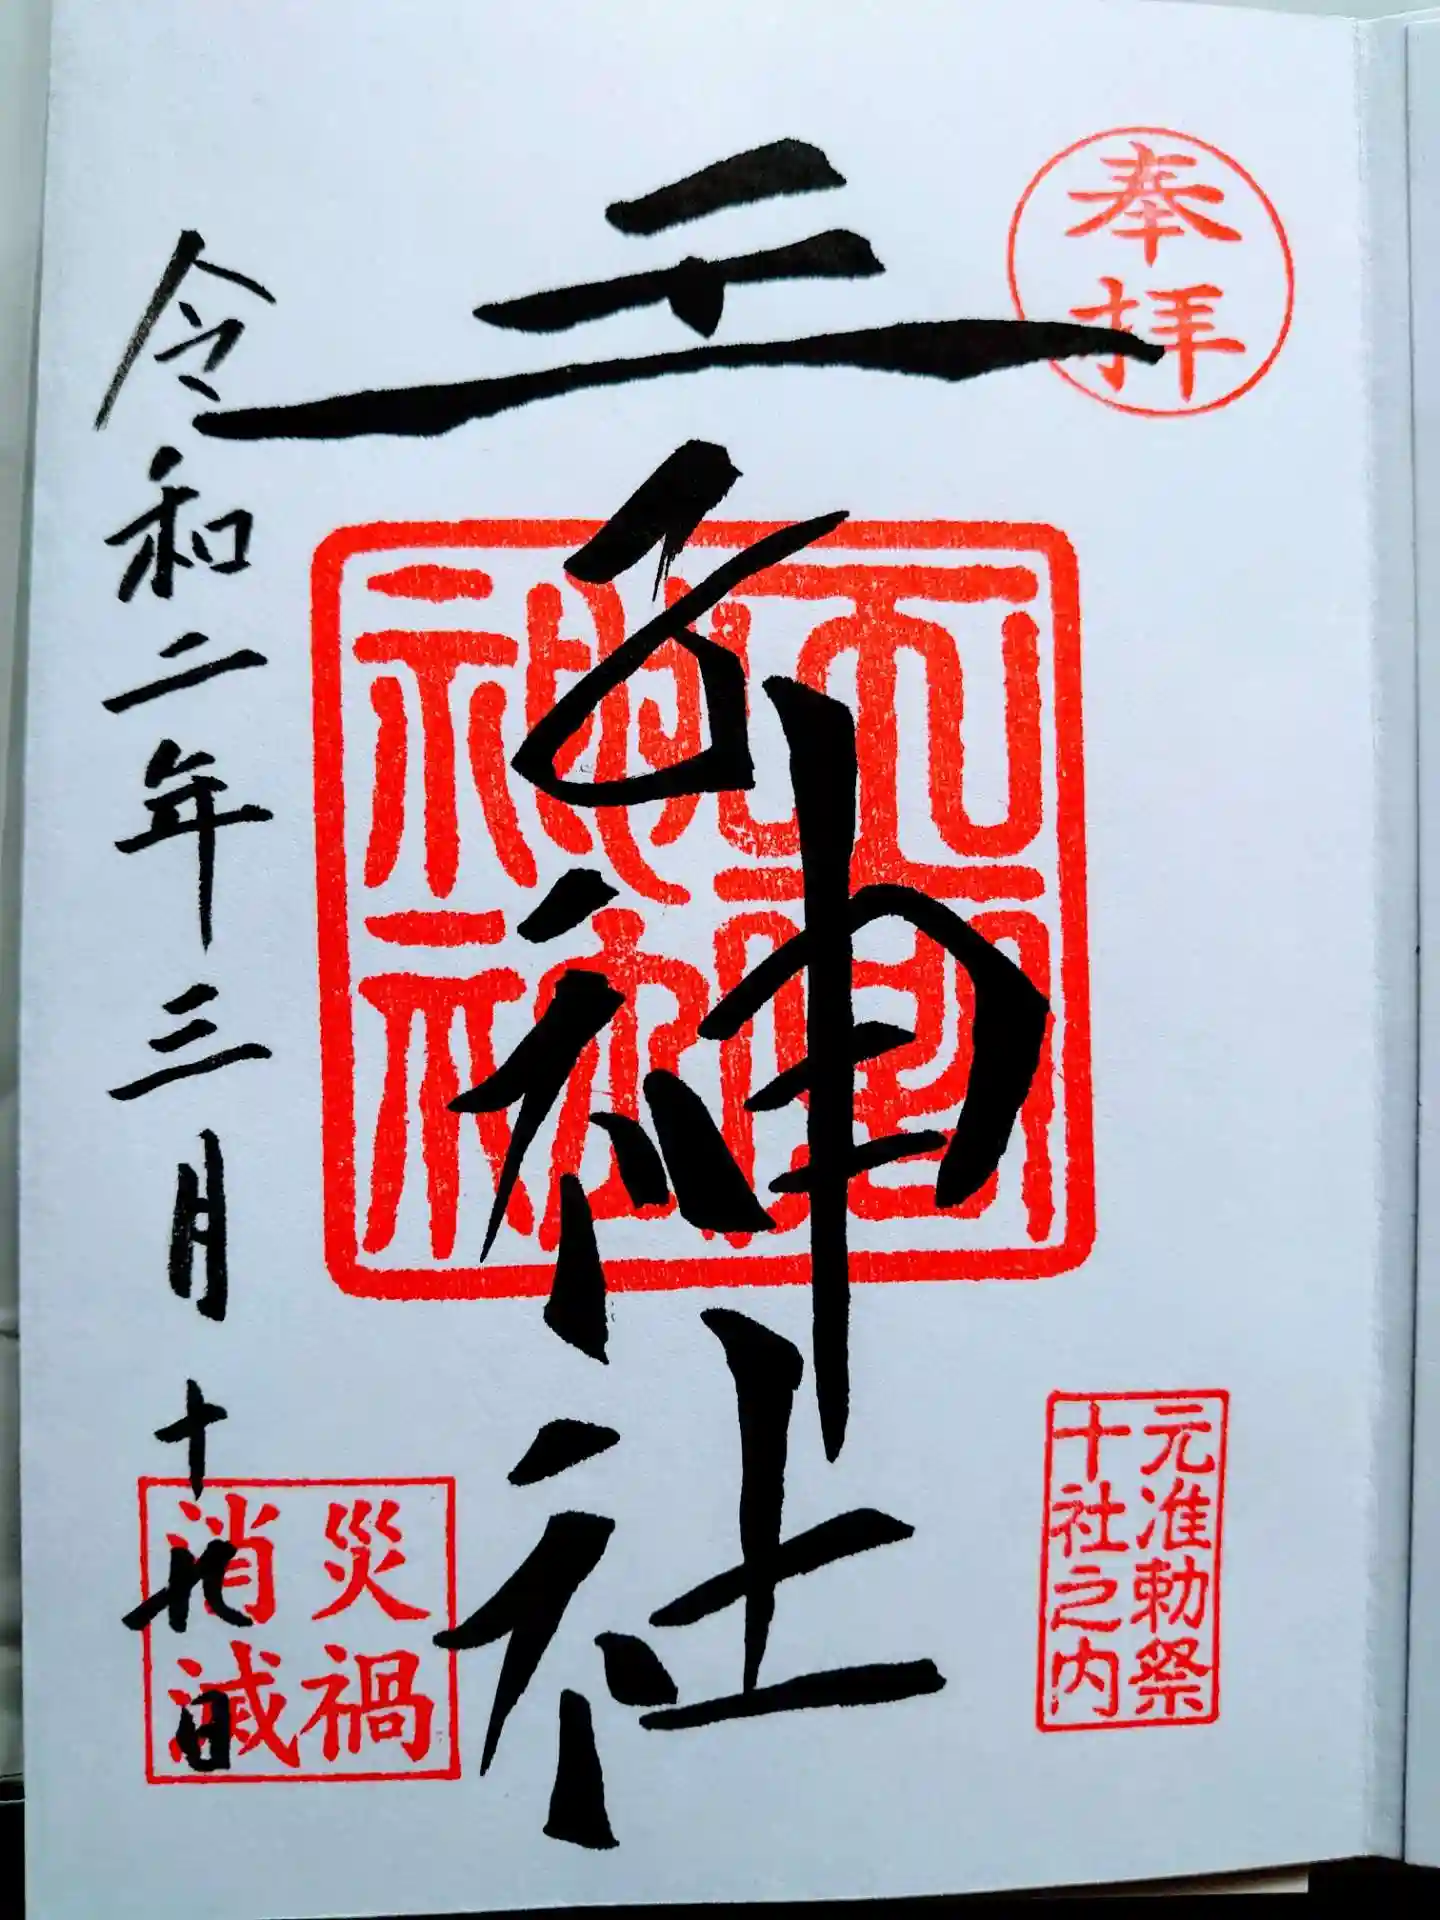 奉拝
王子神社
元准勅祭
十社之内
令和二年三月十九日
災禍
消滅